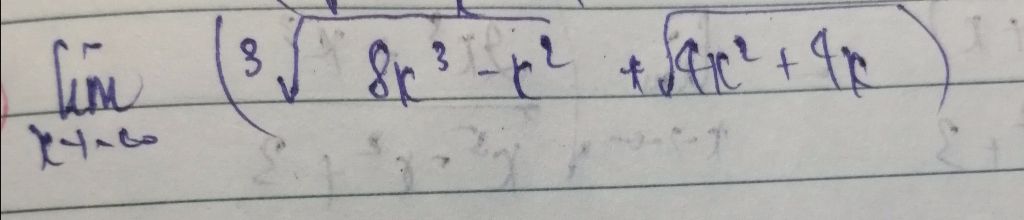 lim (³√8x³ - x² + √4x² + 4x)
x→-∞